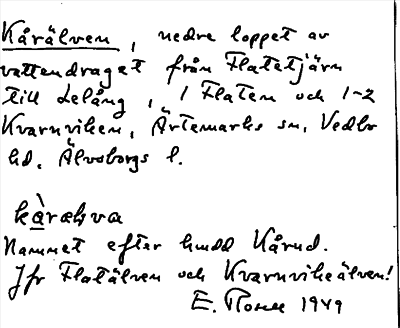 Kårälven, nedre loppet av
vattendraget från Flatetjärn
till Lelång, i Flaten och 1-2
Kvarnviken, Ärtemarks sn, Vedbo
hd. Älvsborgs l.
kàrælva
Namnet efter hmdd Kårud.
Jfr Flatälven och Kvarnvikeälven!
E. Rosell 1949